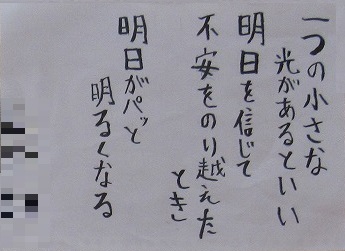 一つの小さな
光があるといい
明日を信じて
不安をのり越えた
とき
明日がパッと
明るくなる